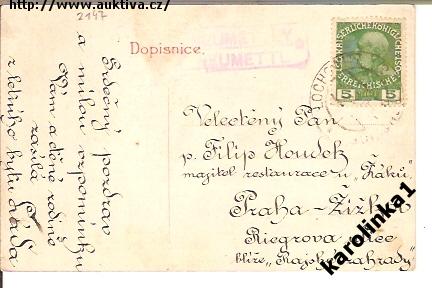 http://www.auktiva.cz/
2147
Dopisnice.
KAISERLICHE KÖNIGLICHE
ÖSTERREICHISCHE
5 5
Srdečný pozdrav
a milou vzpomínku
Vám a ctěné rodině
zasílá
z letního bytu
Velectěný Pan
p. Filip Houdek
majitel restaurace u „Žáků"
Praha-Žižkov
Riegrova
blíže „Rajské zahrady"
karolinka1